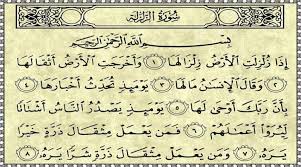 سُورَةُ الزَّلْزَلَةِ
بِسْمِ اللَّهِ الرَّحْمَٰنِ الرَّحِيمِ
إِذَا زُلْزِلَتِ الْأَرْضُ زِلْزَالَهَا ۝١ وَأَخْرَجَتِ الْأَرْضُ أَثْقَالَهَا
۝٢ وَقَالَ الْإِنسَٰنُ مَا لَهَا ۝٣ يَوْمَئِذٍ تُحَدِّثُ أَخْبَارَهَا ۝٤
بِأَنَّ رَبَّكَ أَوْحَىٰ لَهَا ۝٥ يَوْمَئِذٍ يَصْدُرُ النَّاسُ أَشْتَاتًا
لِّيُرَوْا أَعْمَٰلَهُمْ ۝٦ فَمَن يَعْمَلْ مِثْقَالَ ذَرَّةٍ خَيْرًا
يَرَهُ ۝٧ وَمَن يَعْمَلْ مِثْقَالَ ذَرَّةٍ شَرًّا يَرَهُ ۝٨